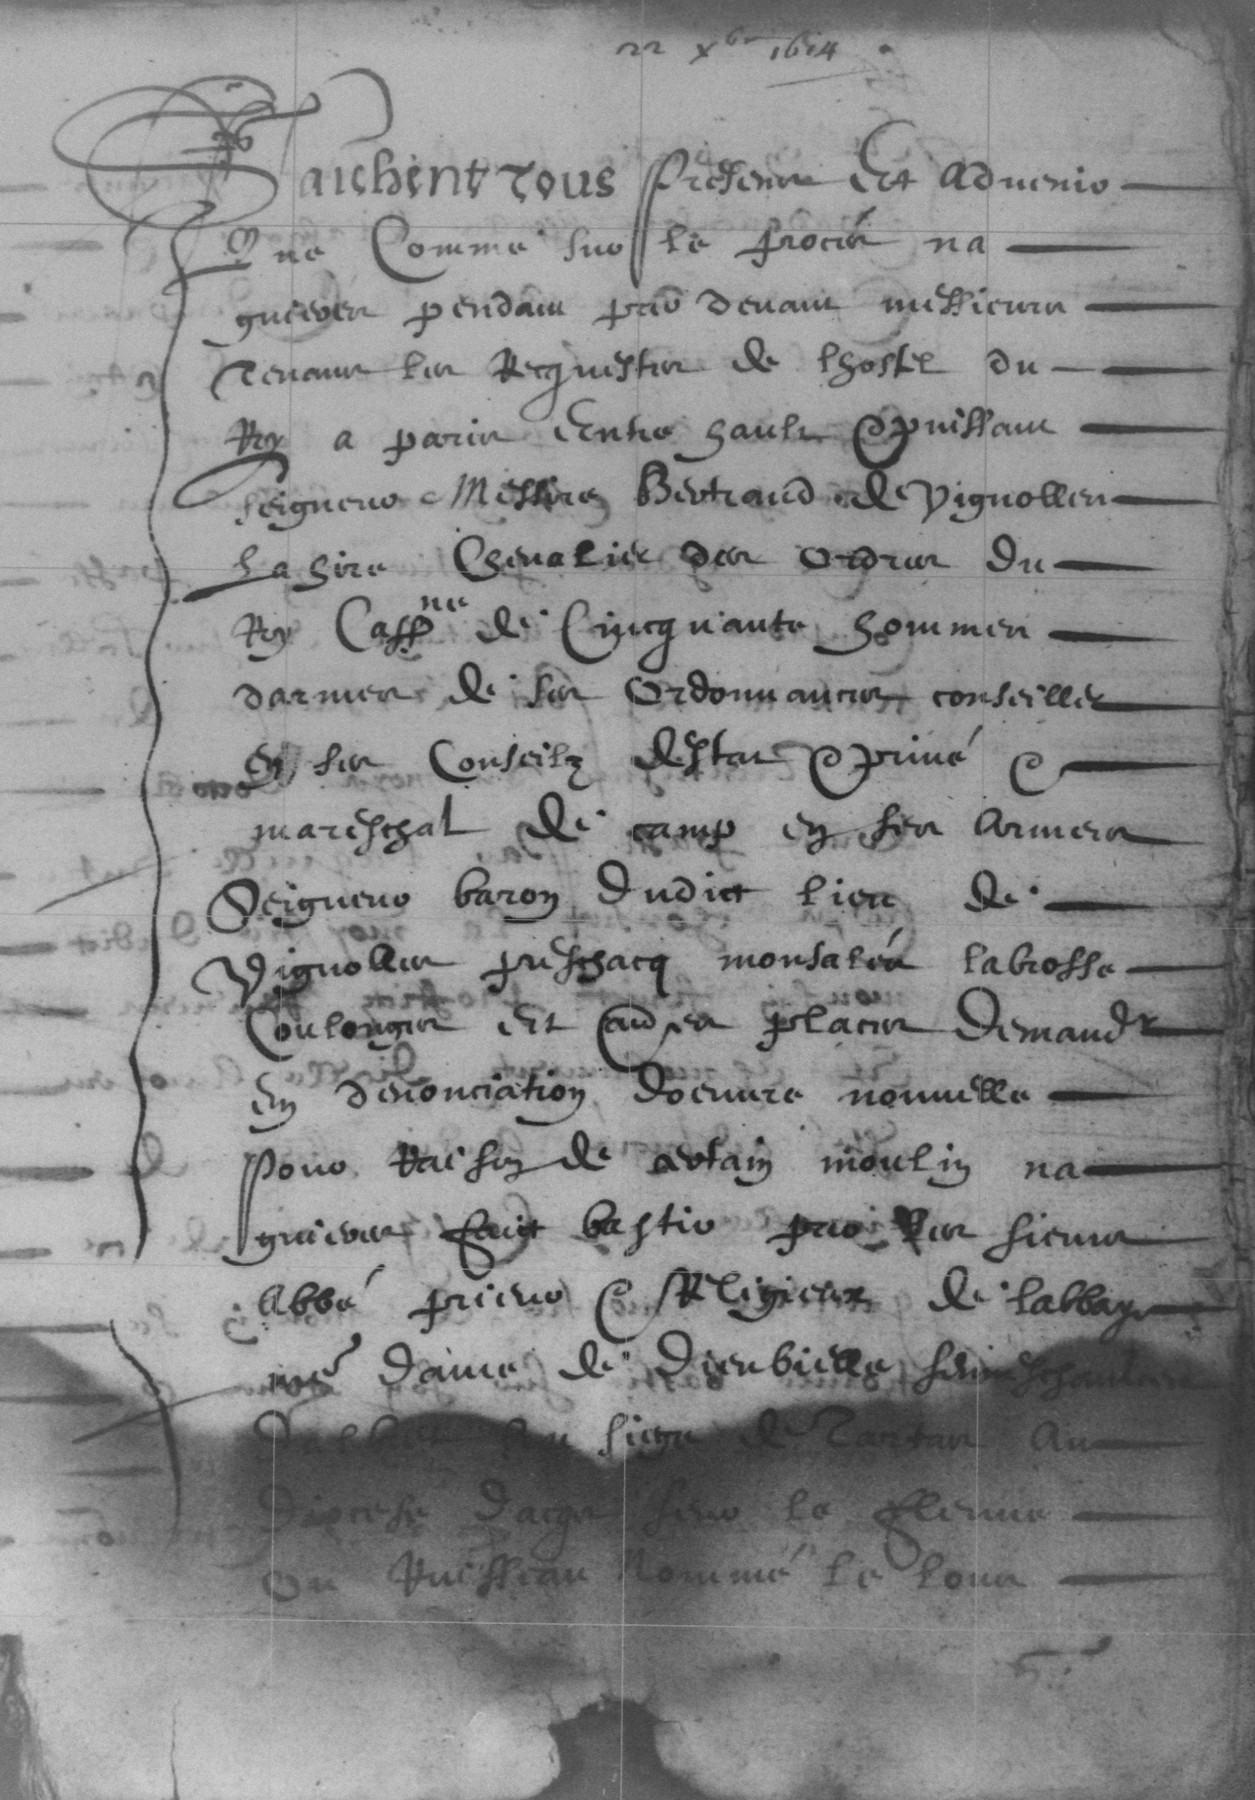 22 xbr 1614
Saichent tous presens Et advenir
Que Comme sur le procès na
guieres pendant par devant messieurs
tenans les Requestes de lhostel du
Roy a paris Entre hault & puissant
seigneur Messire Bertrand de vignolles
La hire Chevalier des ordres du
Roy Cappne de Cincquante hommes
darmes de ses Ordonnances conseiller
en ses Conseilz destat & privé &
mareschal de camp en ses armees
Seigneur baron dudict lieu de
Vignolles preschacq monsalés labrosse
Coulonges Et aues places Demandr
En denonciation doeuvre nouvelle
pour Raison de certain moulin na
guieres faict bastir par les sieurs
Abbé prieur & Religieux de labbaye
nre Dame de Dieubielle seneschaulcee
Dalbret Au siege de Tartas Au
Diocese dacqs seur le fleuve
Ou Ruisseau Nommé le lour